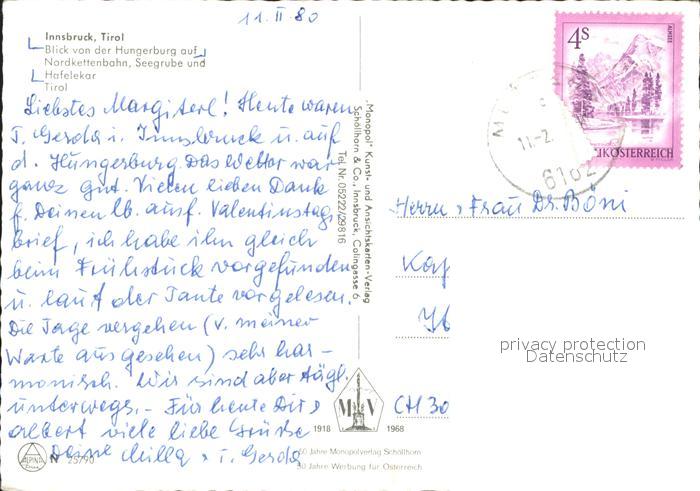 11. II. 80
Innsbruck, Tirol
Blick von der Hungerburg auf
Nordkettenbahn, Seegrube und
Hafelekar
Tirol
Liebstes Margiterl! Heute waren
T. Gerda i. Innsbruck u. auf
d. Hungerburg. Das Wetter war
ganz gut. Vielen lieben Dank
f. Deinen lb. ausf. Valentinstag
brief, ich habe ihn gleich
beim Frühstück vorgefunden
u. laut der Tante vorgelesen.
Die Tage vergehen (v. meiner
Warte aus gesehen) sehr har-
monisch. Wir sind aber tägl.
unterwegs. – Für heute Dir &
Albert viele liebe Grüsse
Deine Milla & T. Gerda
ALPINA
N 25790
"Monopol" Kunst- und Ansichtskarten-Verlag
Schöllhorn & Co., Innsbruck, Colingasse 6
Tel. Nr. 05222/29816
4S
ALMSEE
REPUBLIK ÖSTERREICH
11.-2.
6162
Herrn & Frau Dr. Böni
CH 30
privacy protection
Datenschutz
M V
1918 1968
50 Jahre Monopolverlag Schöllhorn
50 Jahre Werbung für Österreich